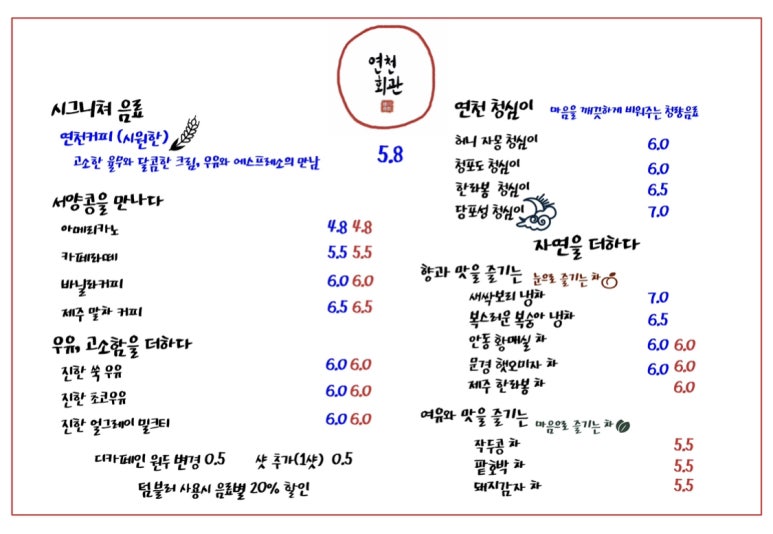 연천
회관
시그니쳐 음료
연천커피 (시원한)
고소한 율무와 달콤한 크림, 우유와 에스프레소의 만남 5.8
서양콩을 만나다
아메리카노 4.8 4.8
카페라떼 5.5 5.5
바닐라커피 6.0 6.0
제주 말차 커피 6.5 6.5
우유, 고소함을 더하다
진한 쑥 우유 6.0 6.0
진한 초코우유 6.0 6.0
진한 얼그레이 밀크티 6.0 6.0
디카페인 원두 변경 0.5 샷 추가(1샷) 0.5
텀블러 사용시 음료별 20% 할인
연천 청심이 마음을 깨끗하게 비워주는 청량음료
허니 자몽 청심이 6.0
청포도 청심이 6.0
한라봉 청심이 6.5
당포성 청심이 7.0
자연을 더하다
향과 맛을 즐기는 눈으로 즐기는 차
새싹보리 냉차 7.0
복스러운 복숭아 냉차 6.5
안동 황매실 차 6.0 6.0
문경 햇오미자 차 6.0 6.0
제주 한라봉 차 6.0
여유와 맛을 즐기는 마음으로 즐기는 차
작두콩 차 5.5
팥호박 차 5.5
돼지감자 차 5.5